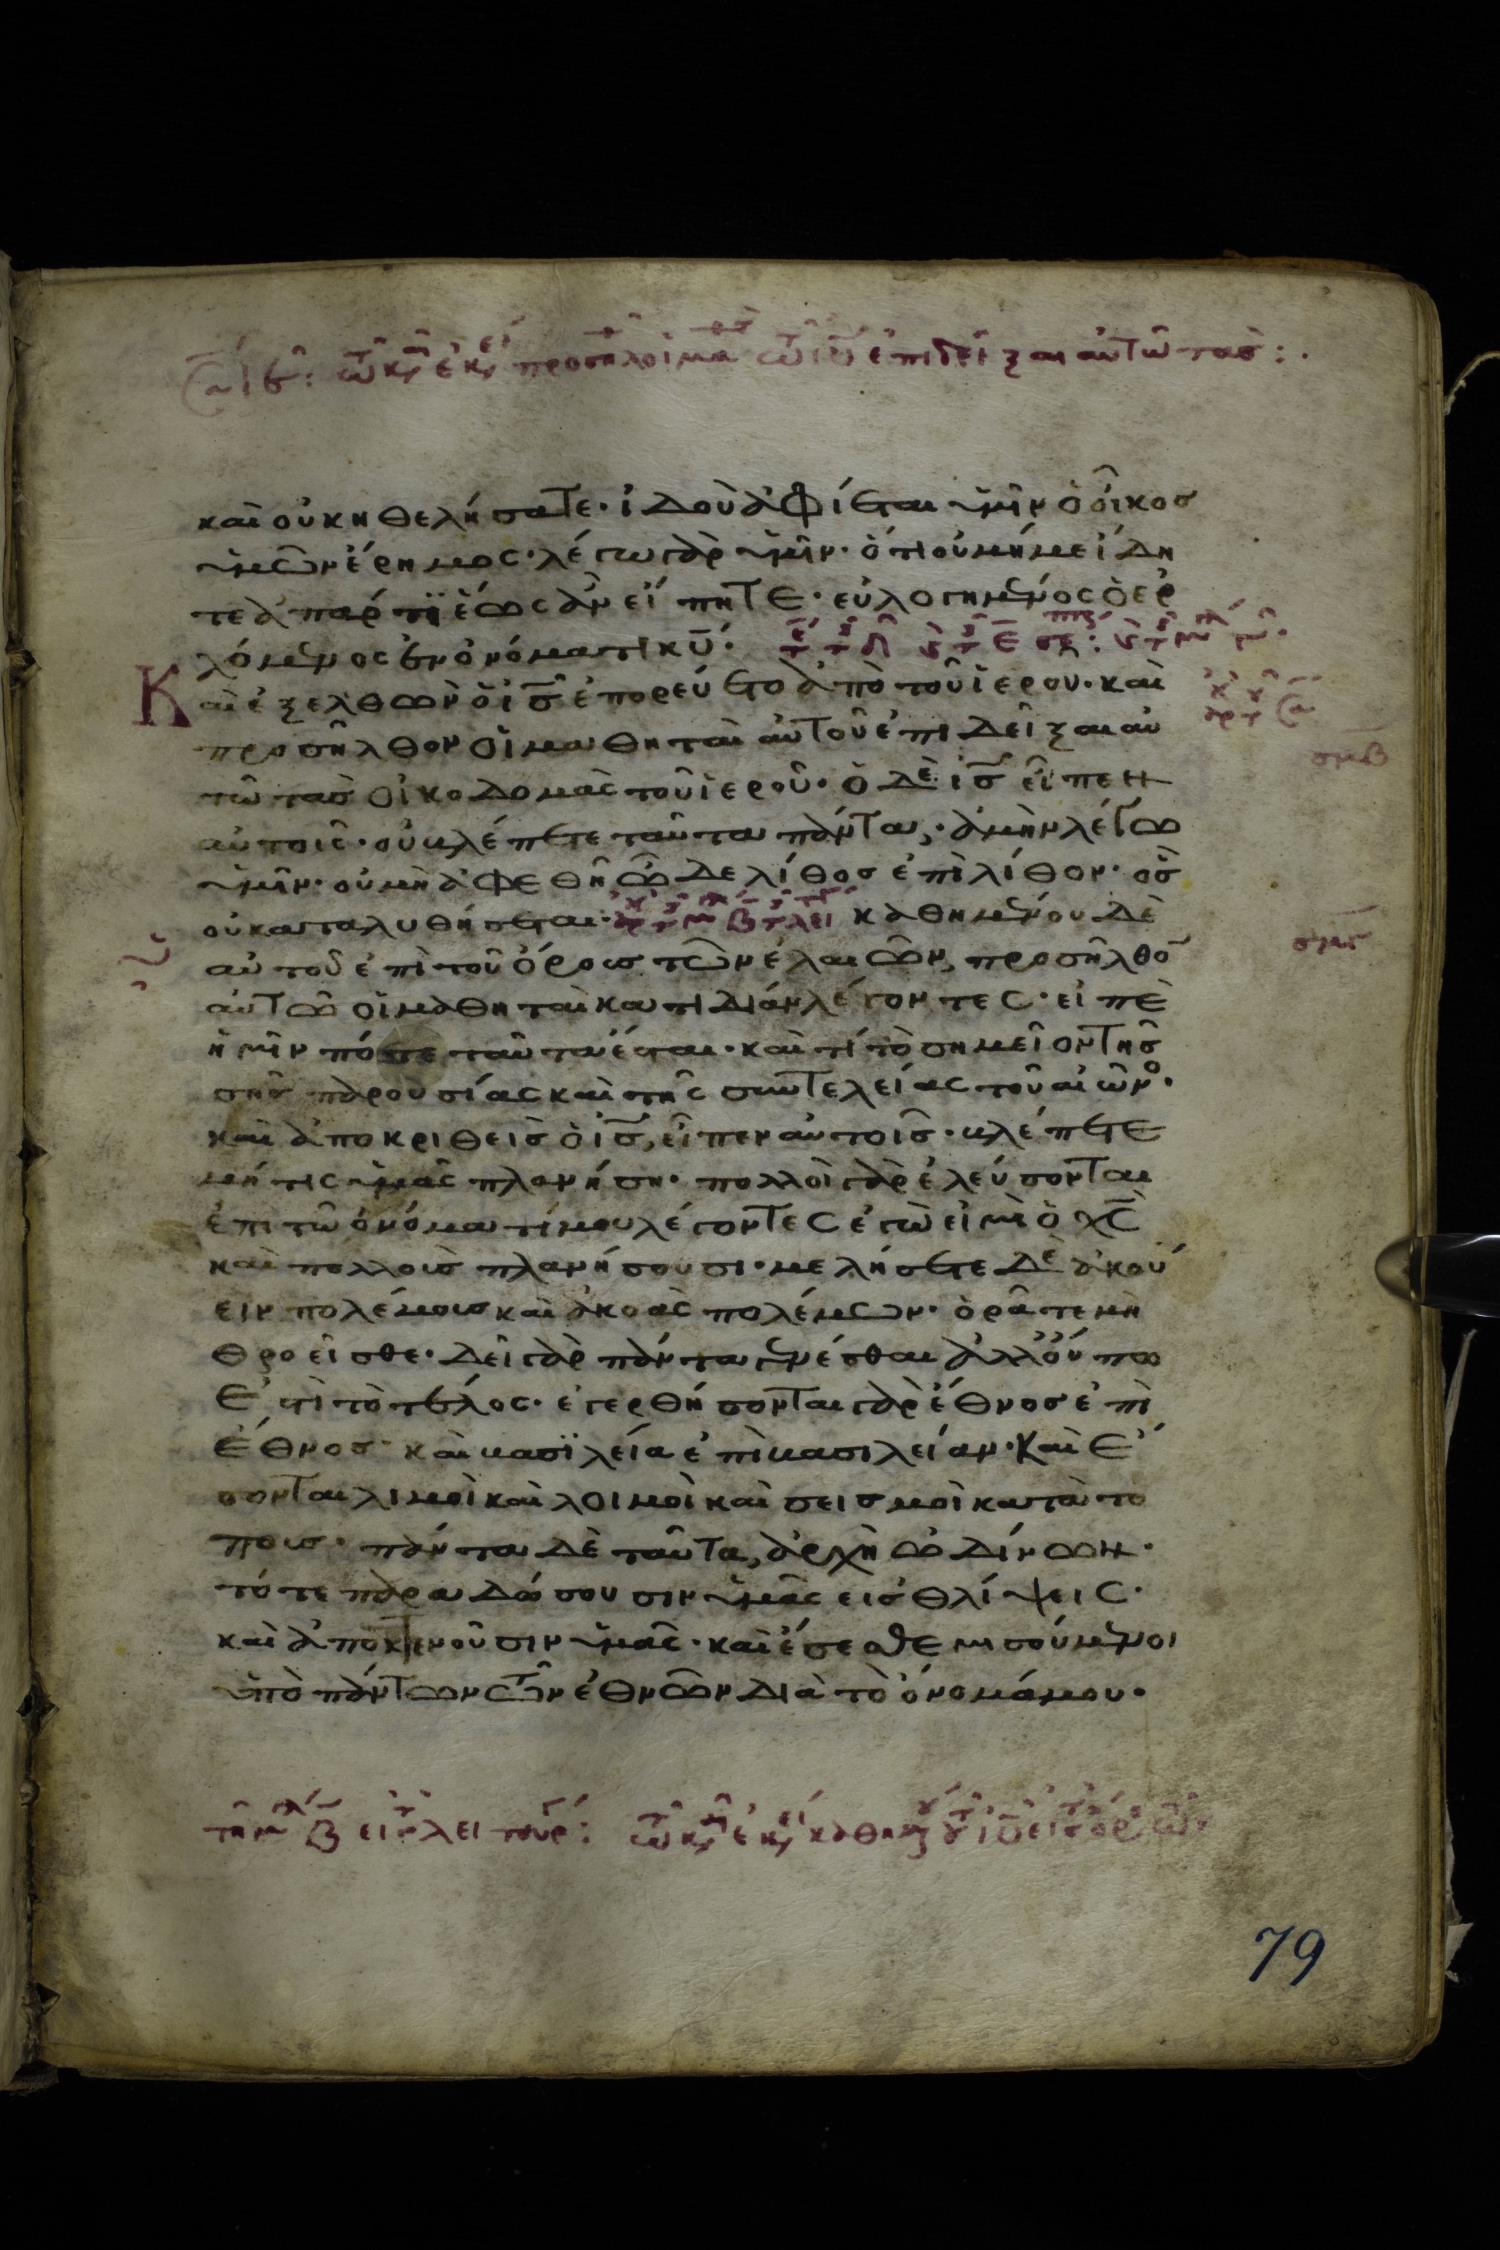 τῶ κρ ἐκ προσῆλθ οἱ μαθ τῶ ιυ ἐπιδεῖξαι αὐτῶ τὰσ :·
καὶ οὐκ ηθελήσατε· ἰδοὺ ἀφίεται ὑμῖν ὁ οἶκοσ
ὑμῶν ἔρημος· λέγω γὰρ ὑμῖν· ὅτι οὐ μή με ἴδη
τε ἀπάρτϊ ἕως ἂν εἴπητε· εὐλογημένος ὁ ἐρ
χόμενος ἐν ὀνόματι κῦ·
Καὶ ἐξελθὼν ὁ ἰς ἐπορεύετο ἀπὸ τοῦ ἱεροῦ· καὶ
προσῆλθον οἱ μαθηταὶ αὐτοῦ ἐπιδεῖξαι αὐ
τῶ τὰσ οἰκοδομὰς τοῦ ἱεροῦ· ὁ δὲ ἰς εἶπεν
αὐτοῖς· οὐ βλέπετε ταῦτα πάντα, ἀμὴν λέγω
ὑμῖν· οὐ μὴ ἀφεθῆ ὧδε λίθοσ ἐπὶ λίθον· ὃσ
οὐ καταλυθήσεται· καθημένου δὲ
αὐτοῦ ἐπὶ τοῦ ὄρουσ τῶν ἐλαιῶν, προσῆλθο̄
αὐτῶ οἱ μαθηταὶ κατιδίαν λέγοντες· εἰπὲ
ἡμῖν πότε ταῦτα ἔσται· καὶ τί τὸ σημεῖον τῆσ
σῆσ παρουσίας καὶ τῆς συντελείας τοῦ αἰῶνο·
καὶ ἀποκριθεὶσ ὁ ἰς, εἶπεν αὐτοῖσ· βλέπετε
μή τις ὑμᾶς πλανήση· πολλοὶ γὰρ ἐλεύσονται
ἐπὶ τῶ ὀνόματί μου λέγοντες ἐγώ εἰμι ὁ χς
καὶ πολλοὺσ πλανήσουσι· μελήσετε δὲ ἀκού
ειν πολέμουσ καὶ ἀκοὰς πολέμων· ὁρᾶτε μὴ
θροεῖσθε· δεῖ γὰρ πάντα γενέσθαι ἀλλοὔπω
ἐστὶ τὸ τέλος· ἐγερθήσονται γὰρ ἔθνοσ ἐπὶ
ἔθνοσ· καὶ βασϊλεία ἐπὶ βασιλείαν· καὶ ἔ
σονται λιμοὶ καὶ λοιμοὶ καὶ σεισμοὶ κατὰ το
πουσ· πάντα δὲ ταῦτα, ἀρχὴ ὠδίνων·
τότε παραδώσουσιν ὑμᾶς εισ θλίψεις·
καὶ ἀποκτενοῦσιν ὑμᾶς· καὶ ἔσεσθε μισούμενοι
ὑπὸ πάντων τῶν ἐθνῶν διὰ τὸ ὄνομά μου·
σμβ
σμγ
79